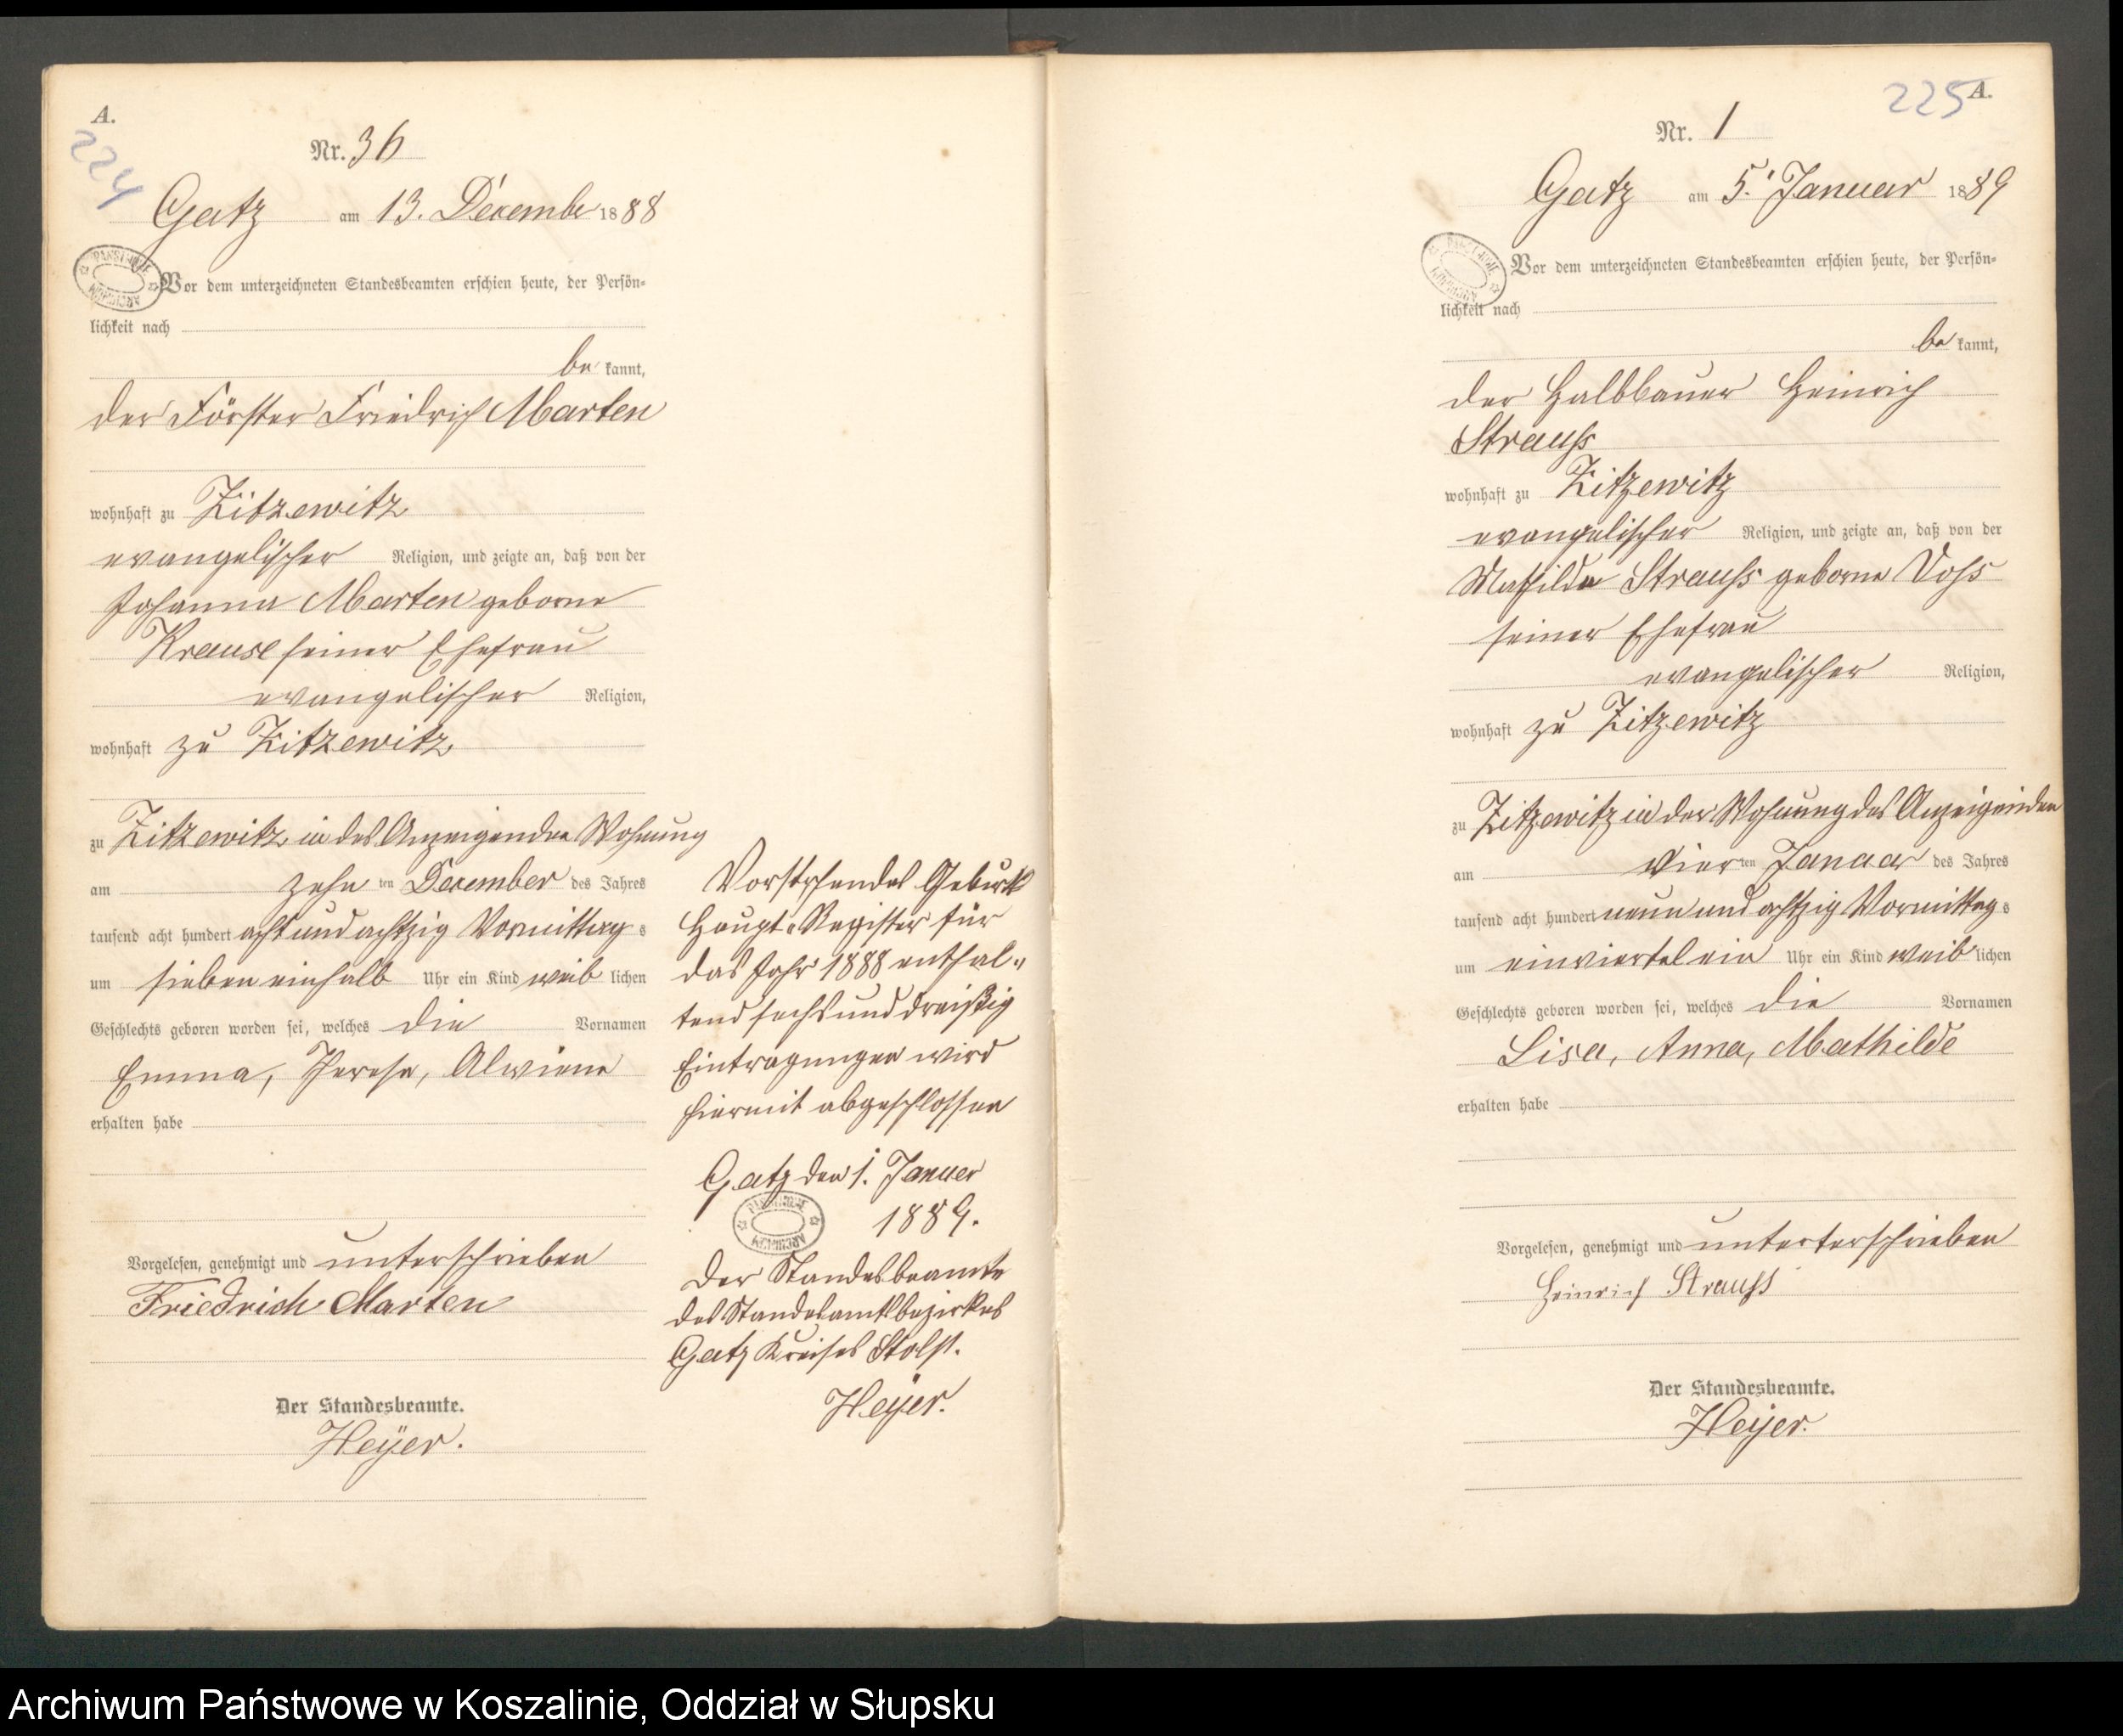 A.
224
Nr. 36
Gatz am 13. December 1888
Vor dem unterzeichneten Standesbeamten erschien heute, der Persön-
lichkeit nach
be kannt,
der Förster Friedrich Marten
wohnhaft zu Zitzewitz
evangelischer Religion, und zeigte an, daß von der
Johanna Marten geborne
Krause seiner Ehefrau
evangelischer Religion,
wohnhaft zu Zitzewitz
zu Zitzewitz in des Anzeigenden Wohnung
am zehn ten December des Jahres
tausend acht hundert acht und achtzig Vormittag s
um sieben einhalb Uhr ein Kind weib lichen
Geschlechts geboren worden sei, welches die Vornamen
Emma, Therese, Alwiene
erhalten habe
Vorgelesen, genehmigt und unterschrieben
Friedrich Marten
Der Standesbeamte.
Heyer.
Vorstehendes Geburts
Haupt-Register für
das Jahr 1888 enthal-
tend sechs und dreißig
Eintragungen wird
hiermit abgeschlossen
Gatz den 1. Januar
1889.
Der Standesbeamte
des Standesamtsbezirkes
Gatz Kreises Stolp.
Heyer.
225 A.
Nr. 1
Gatz am 5. Januar 1889
Vor dem unterzeichneten Standesbeamten erschien heute, der Persön-
lichkeit nach
be kannt,
der Halbbauer Heinrich
Strauss
wohnhaft zu Zitzewitz
evangelischer Religion, und zeigte an, daß von der
Mathilde Strauss geborne Voss
seiner Ehefrau
evangelischer Religion,
wohnhaft zu Zitzewitz
zu Zitzewitz in der Wohnung des Anzeigenden
am vier ten Januar des Jahres
tausend acht hundert neun und achtzig Vormittag s
um einviertel ein Uhr ein Kind weib lichen
Geschlechts geboren worden sei, welches die Vornamen
Lisa, Anna, Mathilde
erhalten habe
Vorgelesen, genehmigt und unterterschrieben
Heinrich Strauss
Der Standesbeamte.
Heyer.
Archiwum Państwowe w Koszalinie, Oddział w Słupsku